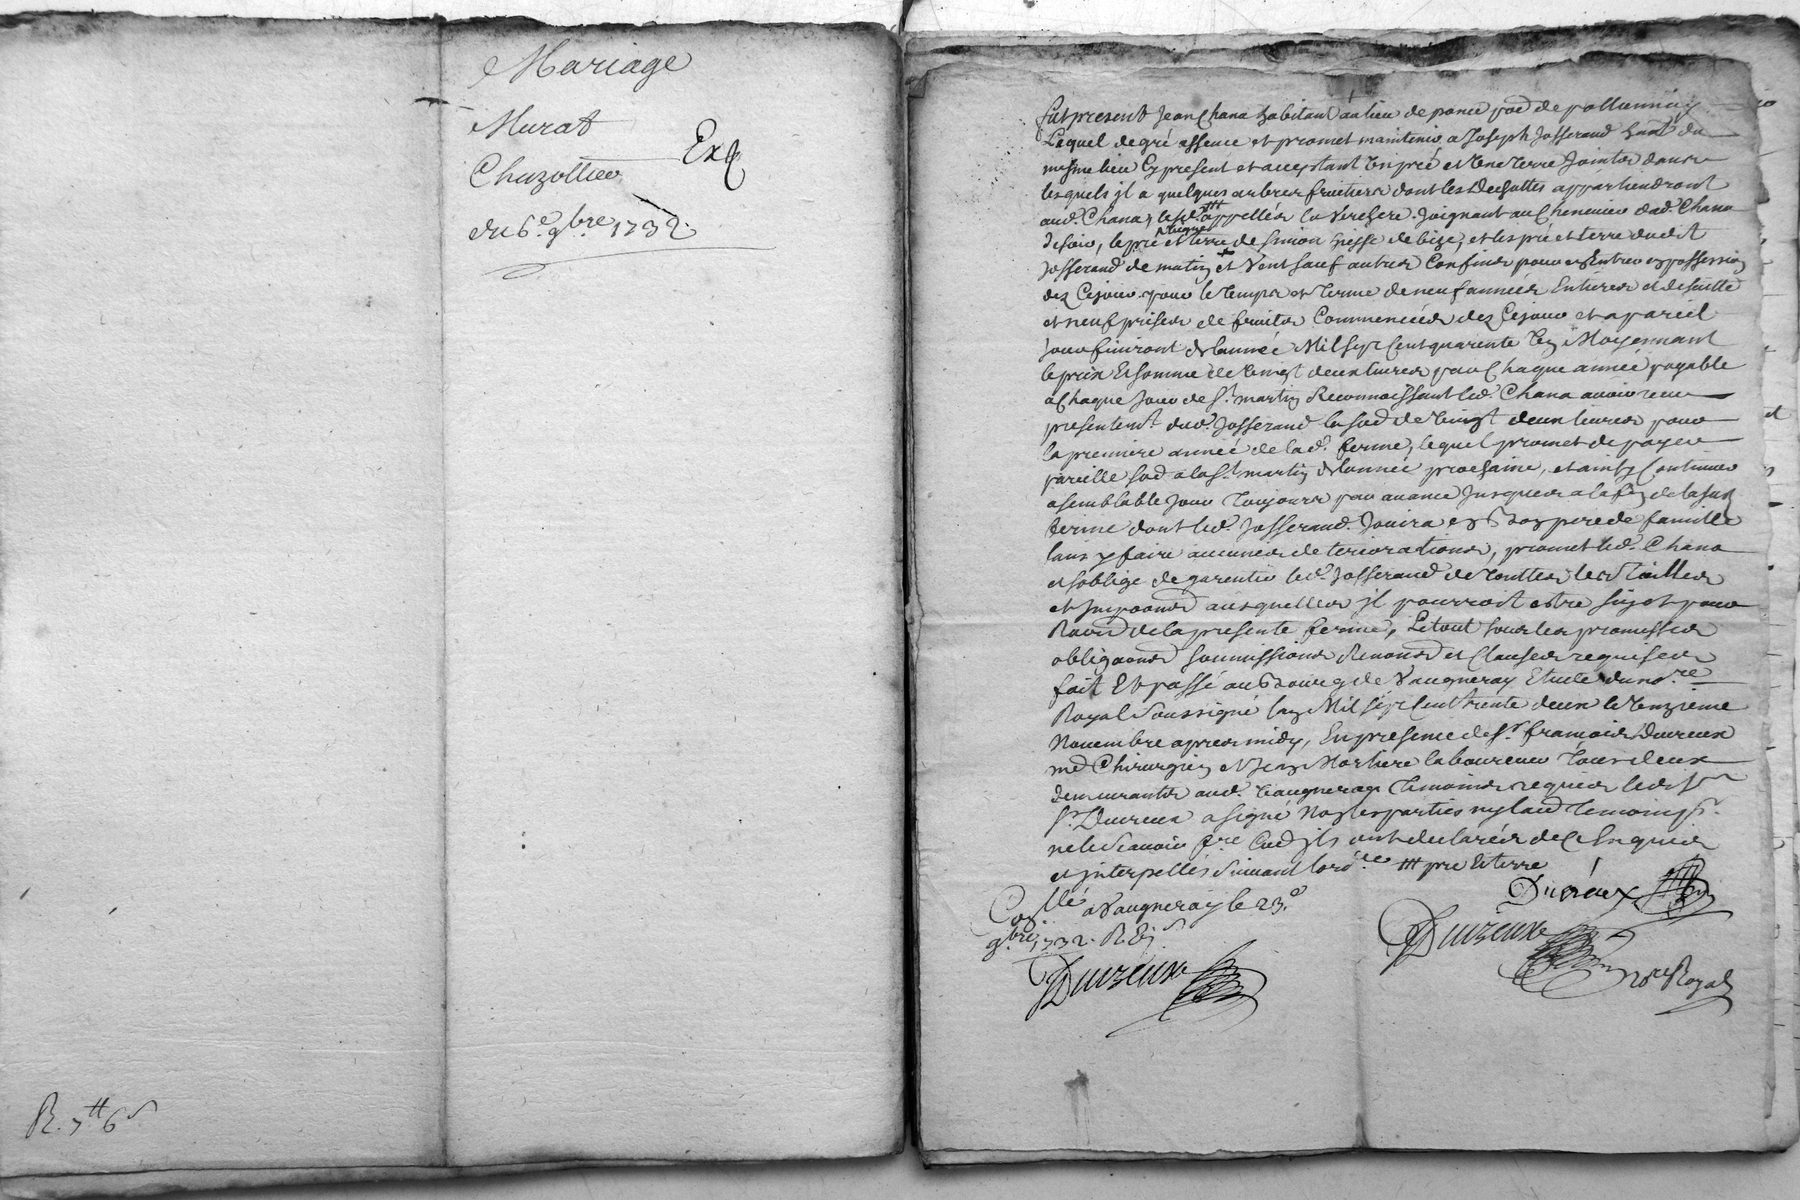 Mariage
Murat
Exp
Chazottier
du 6e 9bre 1732.
R. 7tt 6s
fut present Jean Chana habitant au lieu de ponce de pollionnay
Lequel de gré afferme et promet maintenir a Joseph Josserand hant du
mesme lieu Cy present et acceptant Un pré et Une terre Joints dans
lesquels jl a quelques arbres fruitiers dont les appartiendront
aud. Chana, le sd. ttt appellés la Verchere Joignant au Chenevier dud. Chana
de soir, le pré et terre de simon de bize, et les pré et terre dudit
Josserand de matin et Vent sauf autres Confins pour en Entrer en possession
dez Cejour pour le temps et terme de neuf années Entieres et de suitte
et neuf prises de fruits Commencées dez Cejour et a pareil
Jour finiront de lannée Mil sept Cent quarente Un Moyennant
le prix Et somme de Vingt deux livres pour Chaque année payable
a Chaque Jour de St. martin Reconnoissant led. Chana avoir receu
presentemt. dud. Josserand la sud. de Vingt deux livres pour
la premiere année de lad. ferme, lequel promet de payer
pareille a la St. martin de lannée prochaine, et ainsy Continuer
a semblable Jour toujours par avance Jusques a la fin de la
ferme dont led. Josserand Jouira en Bon pere de famille
sans y faire aucunes deteriorations, promet led. Chana
et soblige de garentir led. Josserand de touttes les tailles
et ausquelles jl pourroit estre sujet pour
de la presente ferme, Le tout sous les promesses
obligaons soumissions Renons et Clauses requises
fait Et passé au Bourg de Vaugneray Etude du nore
Royal Soussigné Lan Mil sept Cent trente deux le Vnzieme
Novembre apres midy, En presence de Sr. francois Dureux
md Chirurgien et Jean laboureur tous deux
demeurants aud. Vaugneray temoins requis led. sr
Sr. Dureux a signé Non les parties ny laud temoin pr.
ne le scavoir fre Comme jls ont declarés de Ce Enquis
et jnterpellés suivant lordce ttt pre Et terre
Dureux
Conllé a Vaugneray le 23e
9bre 1732. R
Dureux
Dureux
nore Royal